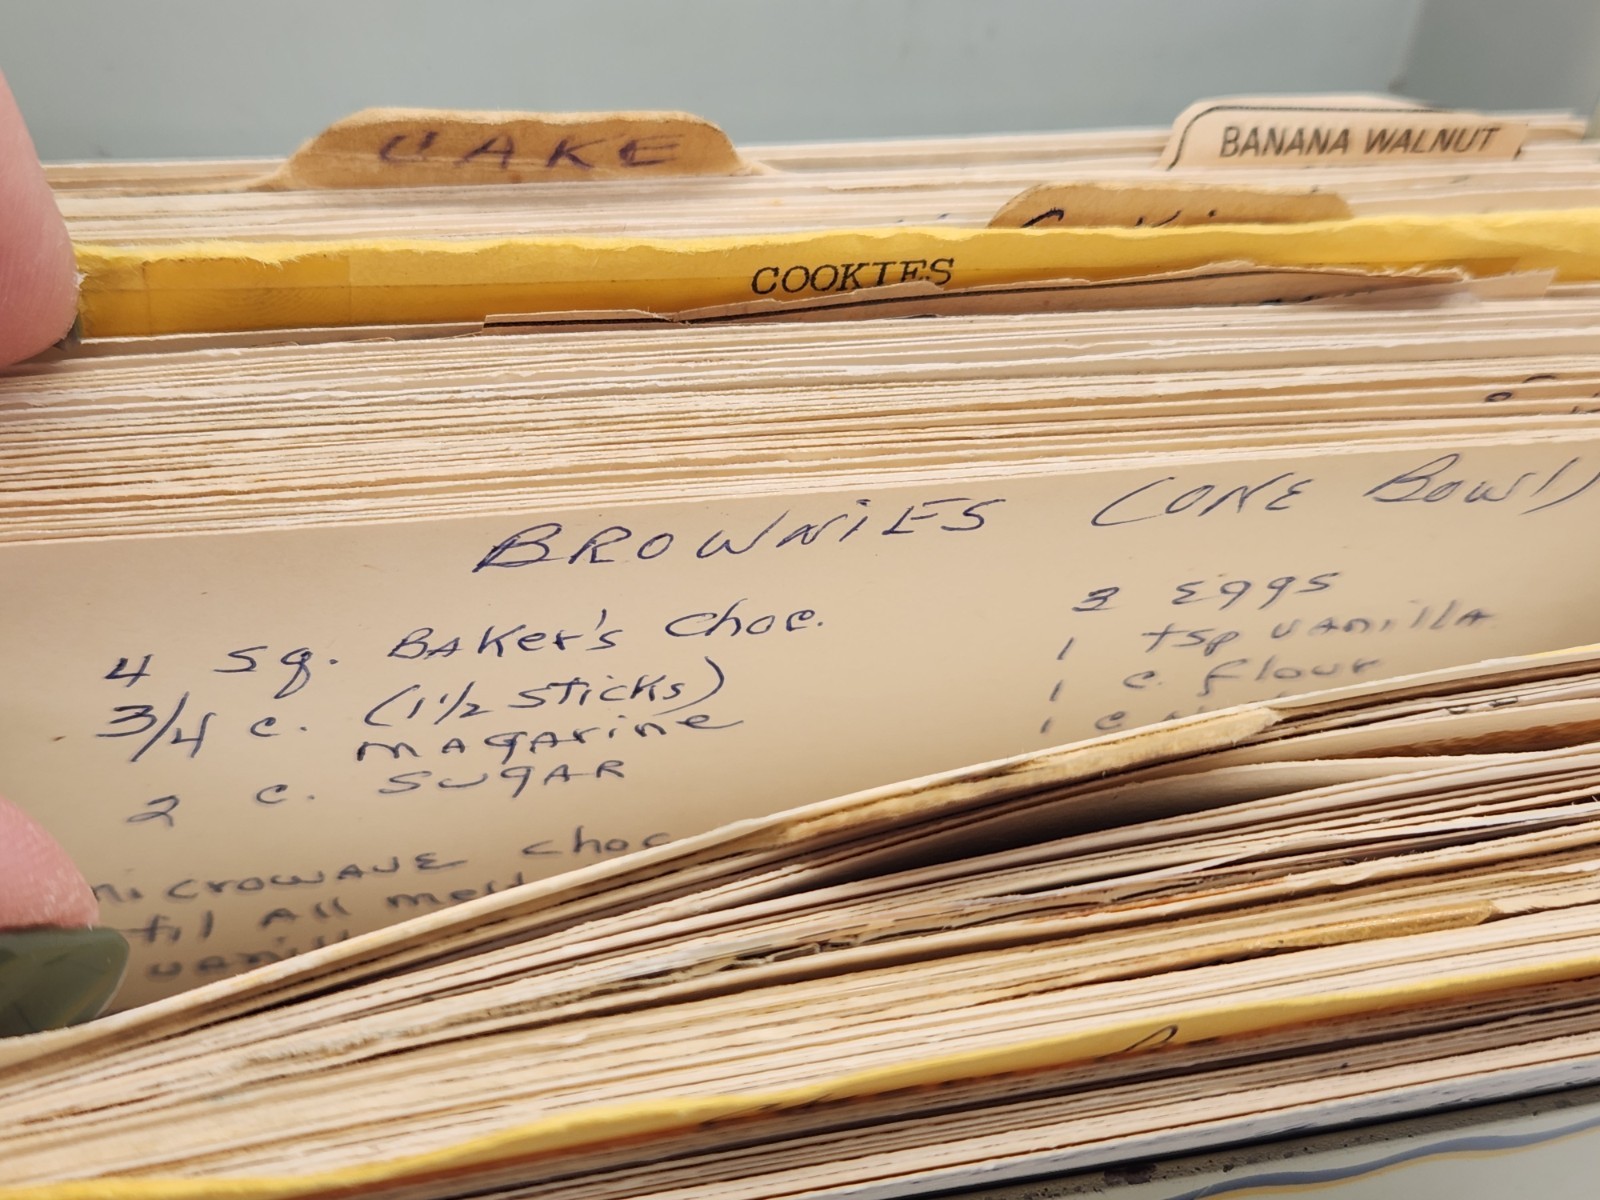 CAKE
BANANA WALNUT
COOKIES
BROWNIES (ONE BOWl)
4 sq. BAKer's choc.
3/4 c. (1 1/2 sticks)
magarine
2 c. sugar
3 Eggs
1 tsp vanilla
1 c. flour
1 c.
microwave choc
til All melt